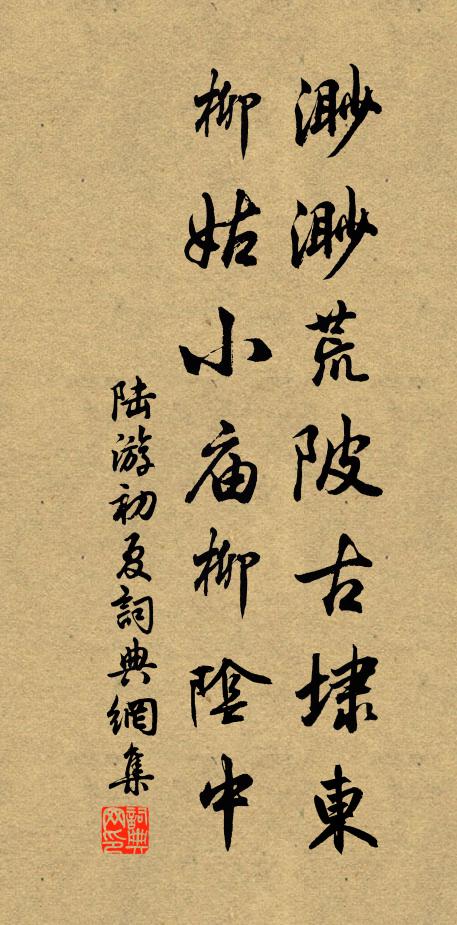 渺渺荒陂古埭東
柳姑小庙柳陰中
陆游初夏詞典網集
詞典网印